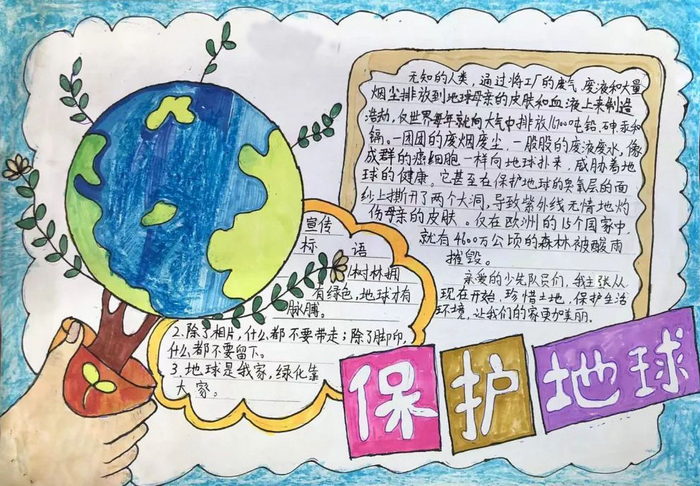 无知的人类,通过将工厂的废气、废液和大量
烟尘排放到地球母亲的皮肤和血液上来制造
浩劫,仅世界每年就向大气中排放 吨铅、砷、汞和
镉。一团团的废烟废尘,一股股的废液废水,像
成群的癌细胞一样向地球扑来,威胁着地
球的健康。它甚至在保护地球的臭氧层的面
纱上撕开了两个大洞,导致紫外线无情地灼
伤母亲的皮肤。仅在欧洲的15个国家中,
就有4600万公顷的森林被酸雨
摧毁。
亲爱的少先队员们,我主张从
现在开始,珍惜土地,保护生活
环境,让我们的 更加美丽。
宣传
标 语
树林拥
有绿色,地球才有
脉搏。
2.除了相片,什么都不要带走;除了脚印,
什么都不要留下。
3.地球是我家,绿化靠
大家。
保护地球